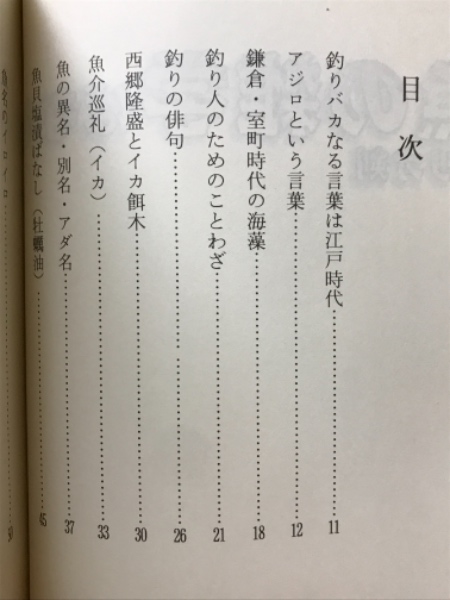 目次
釣りバカなる言葉は江戸時代……11
アジロという言葉……12
鎌倉・室町時代の海藻……18
釣り人のためのことわざ……21
釣りの俳句……26
西郷隆盛とイカ餌木……30
魚介巡礼（イカ）……33
魚の異名・別名・アダ名……37
魚貝塩漬ばなし（牡蠣油）……45